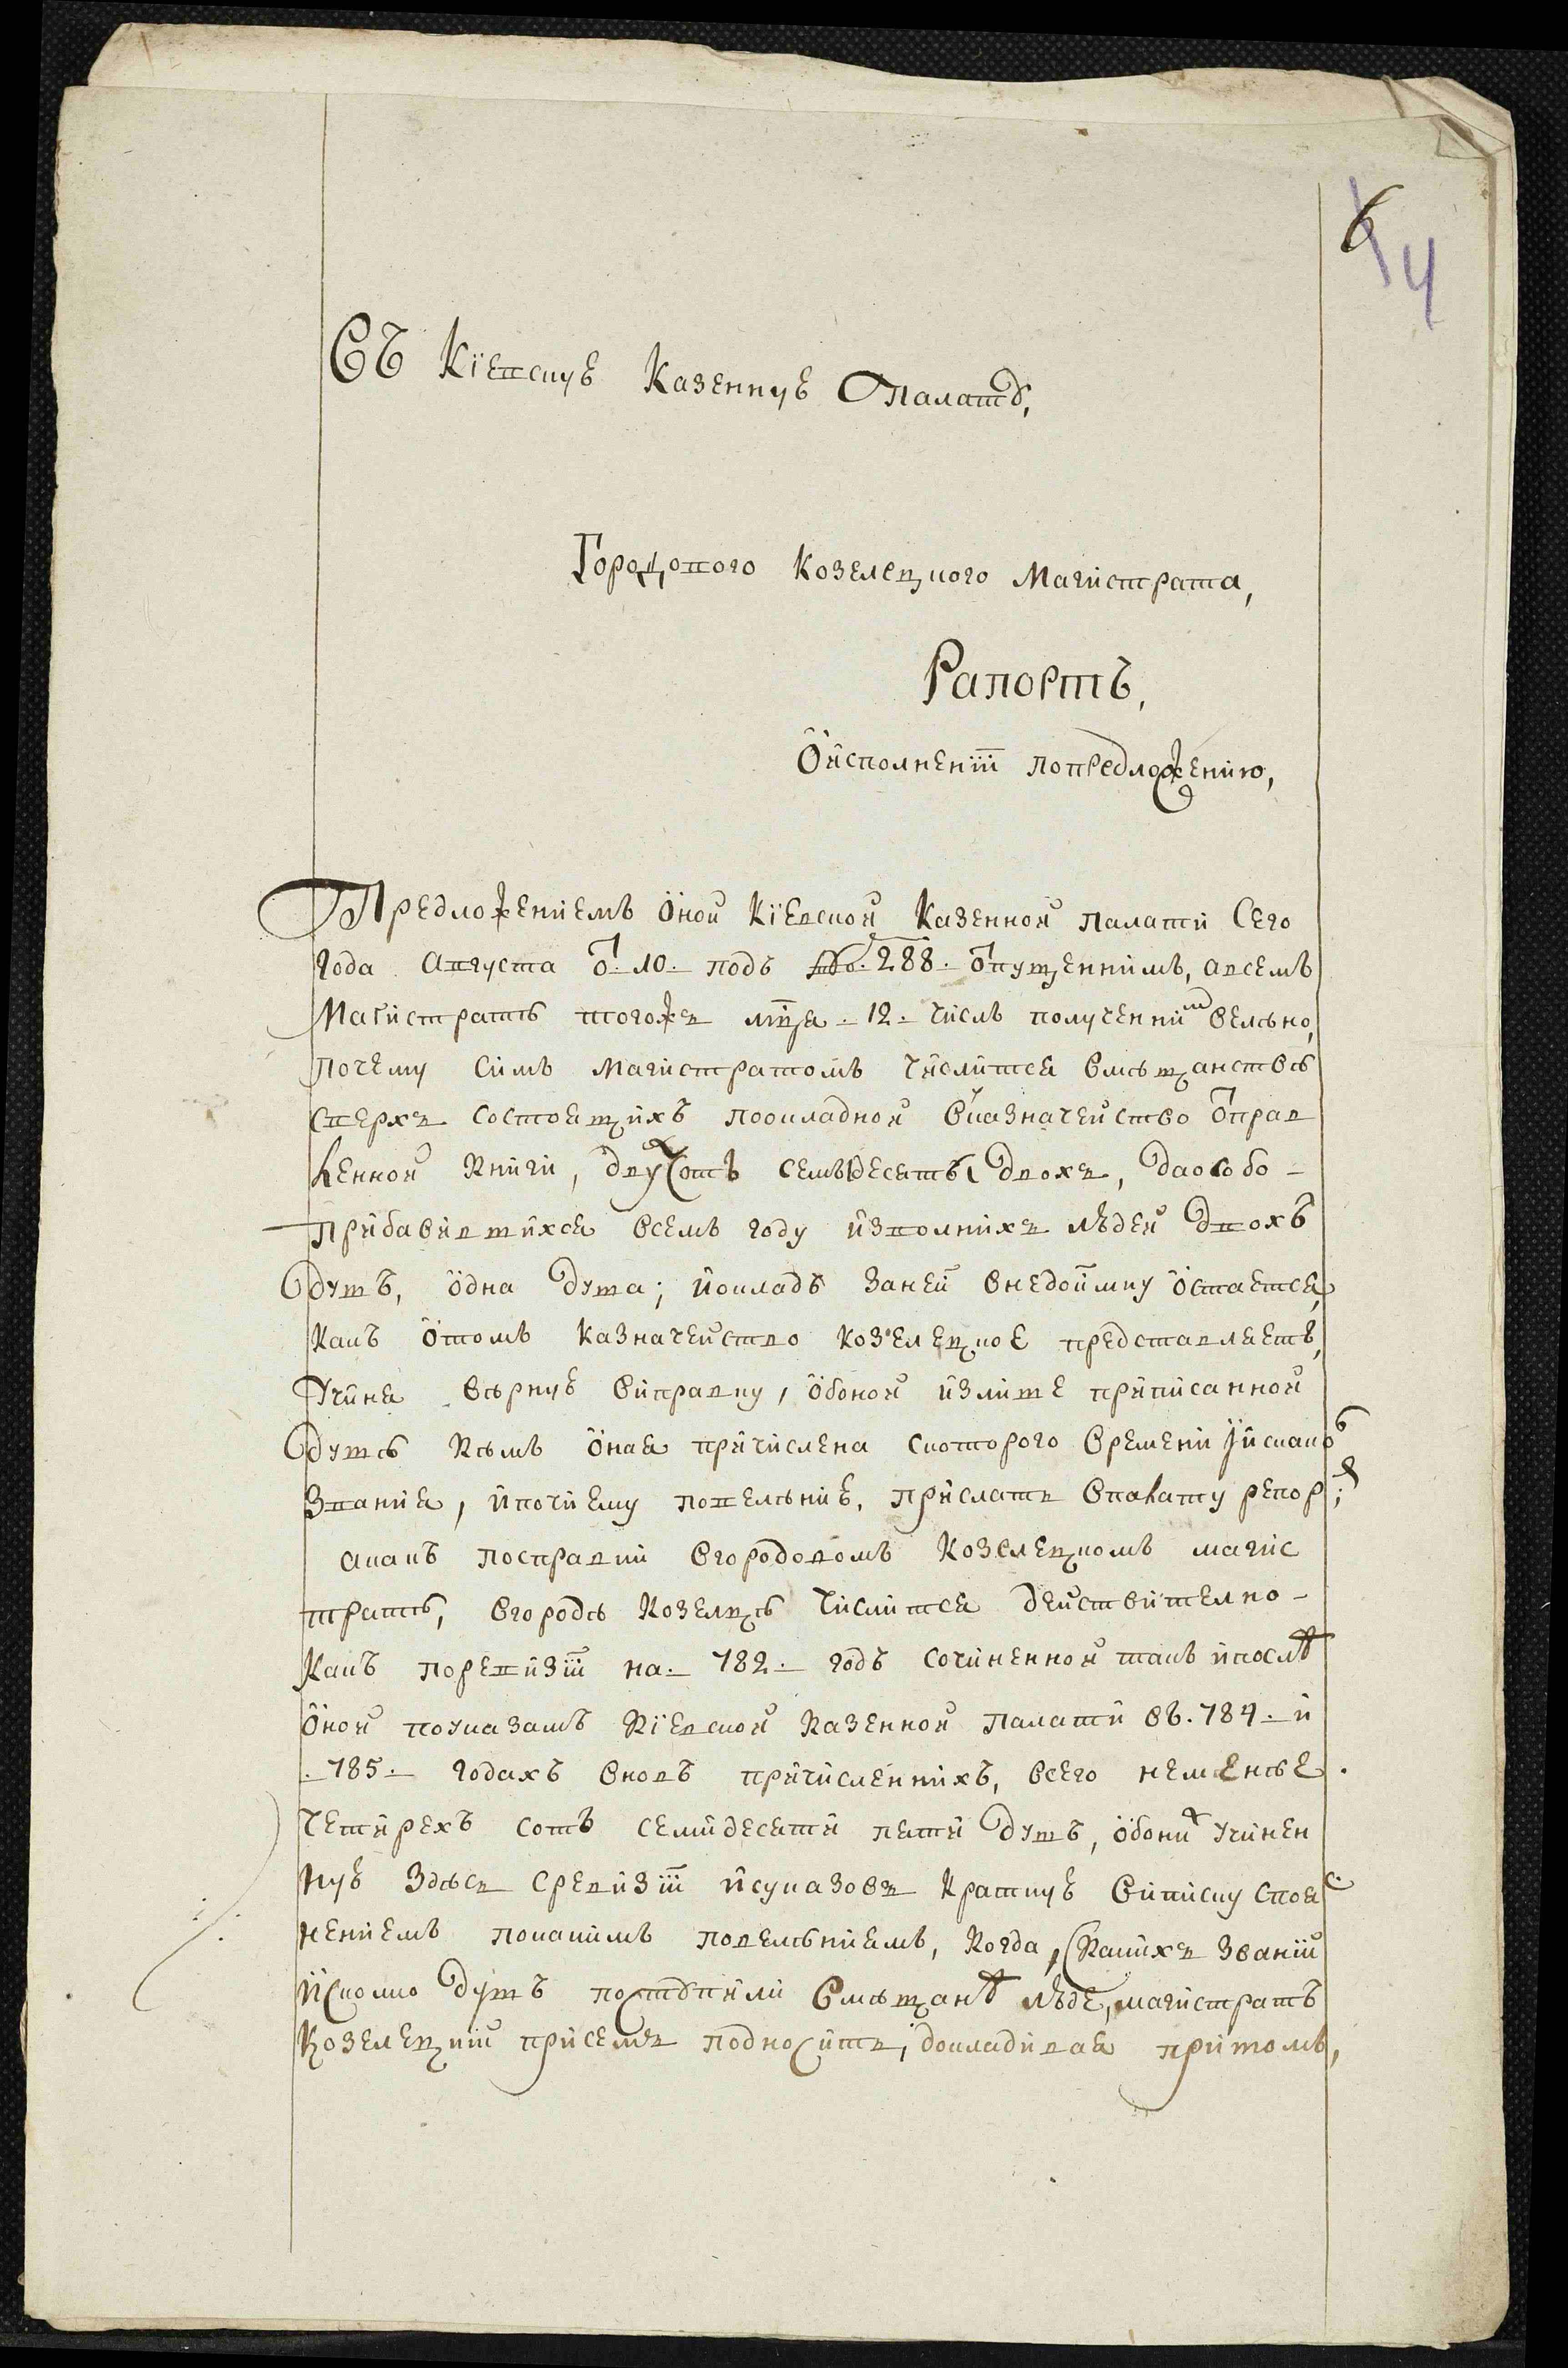 6
4
Въ Кіевскую Казенную Палату,
Городового Козелецкого Магистрата,
Рапортъ,
О исполнении по предложению,
Предложениемъ оной Кіевской Казенной палати Сего
года августа от 10. подъ №. 288. отпущеннимъ, а всемъ
Магистратѣ тогожъ мца. 12. числѣ полученнимъ велѣно,
почему симъ магистратомъ числится вмѣщанствѣ
сверхъ состоящихъ поокладной вказначейство отправ
ленной книги, двухсотъ семъдесятъ двохъ, да особо-
прибавившихся всемъ году изволнихъ людей двохъ
душъ, одна душа; иокладъ заней внедоимку остается,
какъ отомъ казначейство козелецкое представляетъ,
Учиня вѣрную виправку, обоной излише приписанной
душѣ кѣмъ оная причислена скоторого времени искаковъ
званія, ипочиему повелѣнию, прислать впалату репор;
акакъ посправки вгородовомъ козелецкомъ магис
тратѣ, вгородѣ козелцѣ числится действително-
какъ поревизіи на. 782. годъ сочиненной такъ ипослѣ
оной поуказамъ кіевской казенной палати въ. 784. и
. 785. годахъ вновъ причисленнихъ, всего неменѣе.
четирехъ сотъ семидесяти пяти душъ, обонихъ учинен
ную здѣсь среvизіи исуказовъ краткую виписку споя
нениемъ покакимъ повелѣниямъ, когда, скакихъ званій
исколко душъ поступили вмѣщанѣ люде, магистратъ
козелецкій присемъ подноситъ, докладивая притомъ,